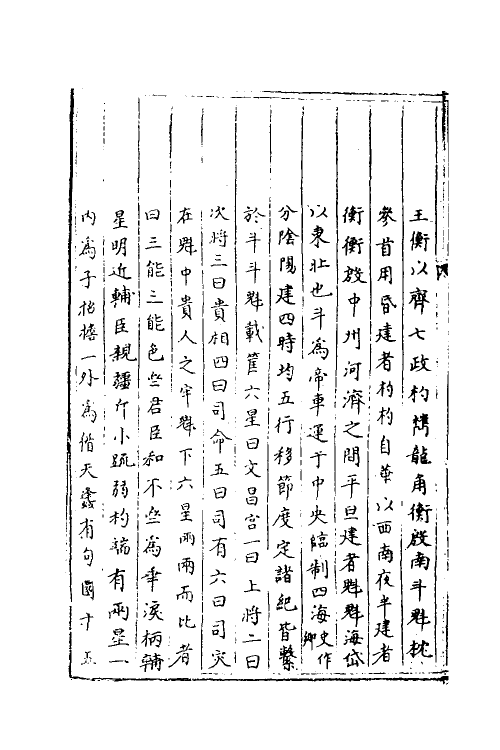 王衡以齊七政杓㩦龍角衡殷南斗魁枕
參首用昏建者杓杓自華以西南夜半建者
衡衡殷中州河濟之間平旦建者魁魁海岱
以東北也斗為帝車運于中央臨制四海史作鄉
分陰陽建四時均五行移節度定諸紀皆繫
於斗斗魁載筐六星曰文昌宮一曰上將二曰
次將三曰貴相四曰司命五曰司有六曰司災
在魁中貴人之牢魁下六星兩兩而比者
曰三能三能色㘴君臣和不㘴為乖淚柄輔
星明近輔臣親疆斤小疏弱杓端有兩星一
內為子招搖一外為偕天蠭有句圜十五